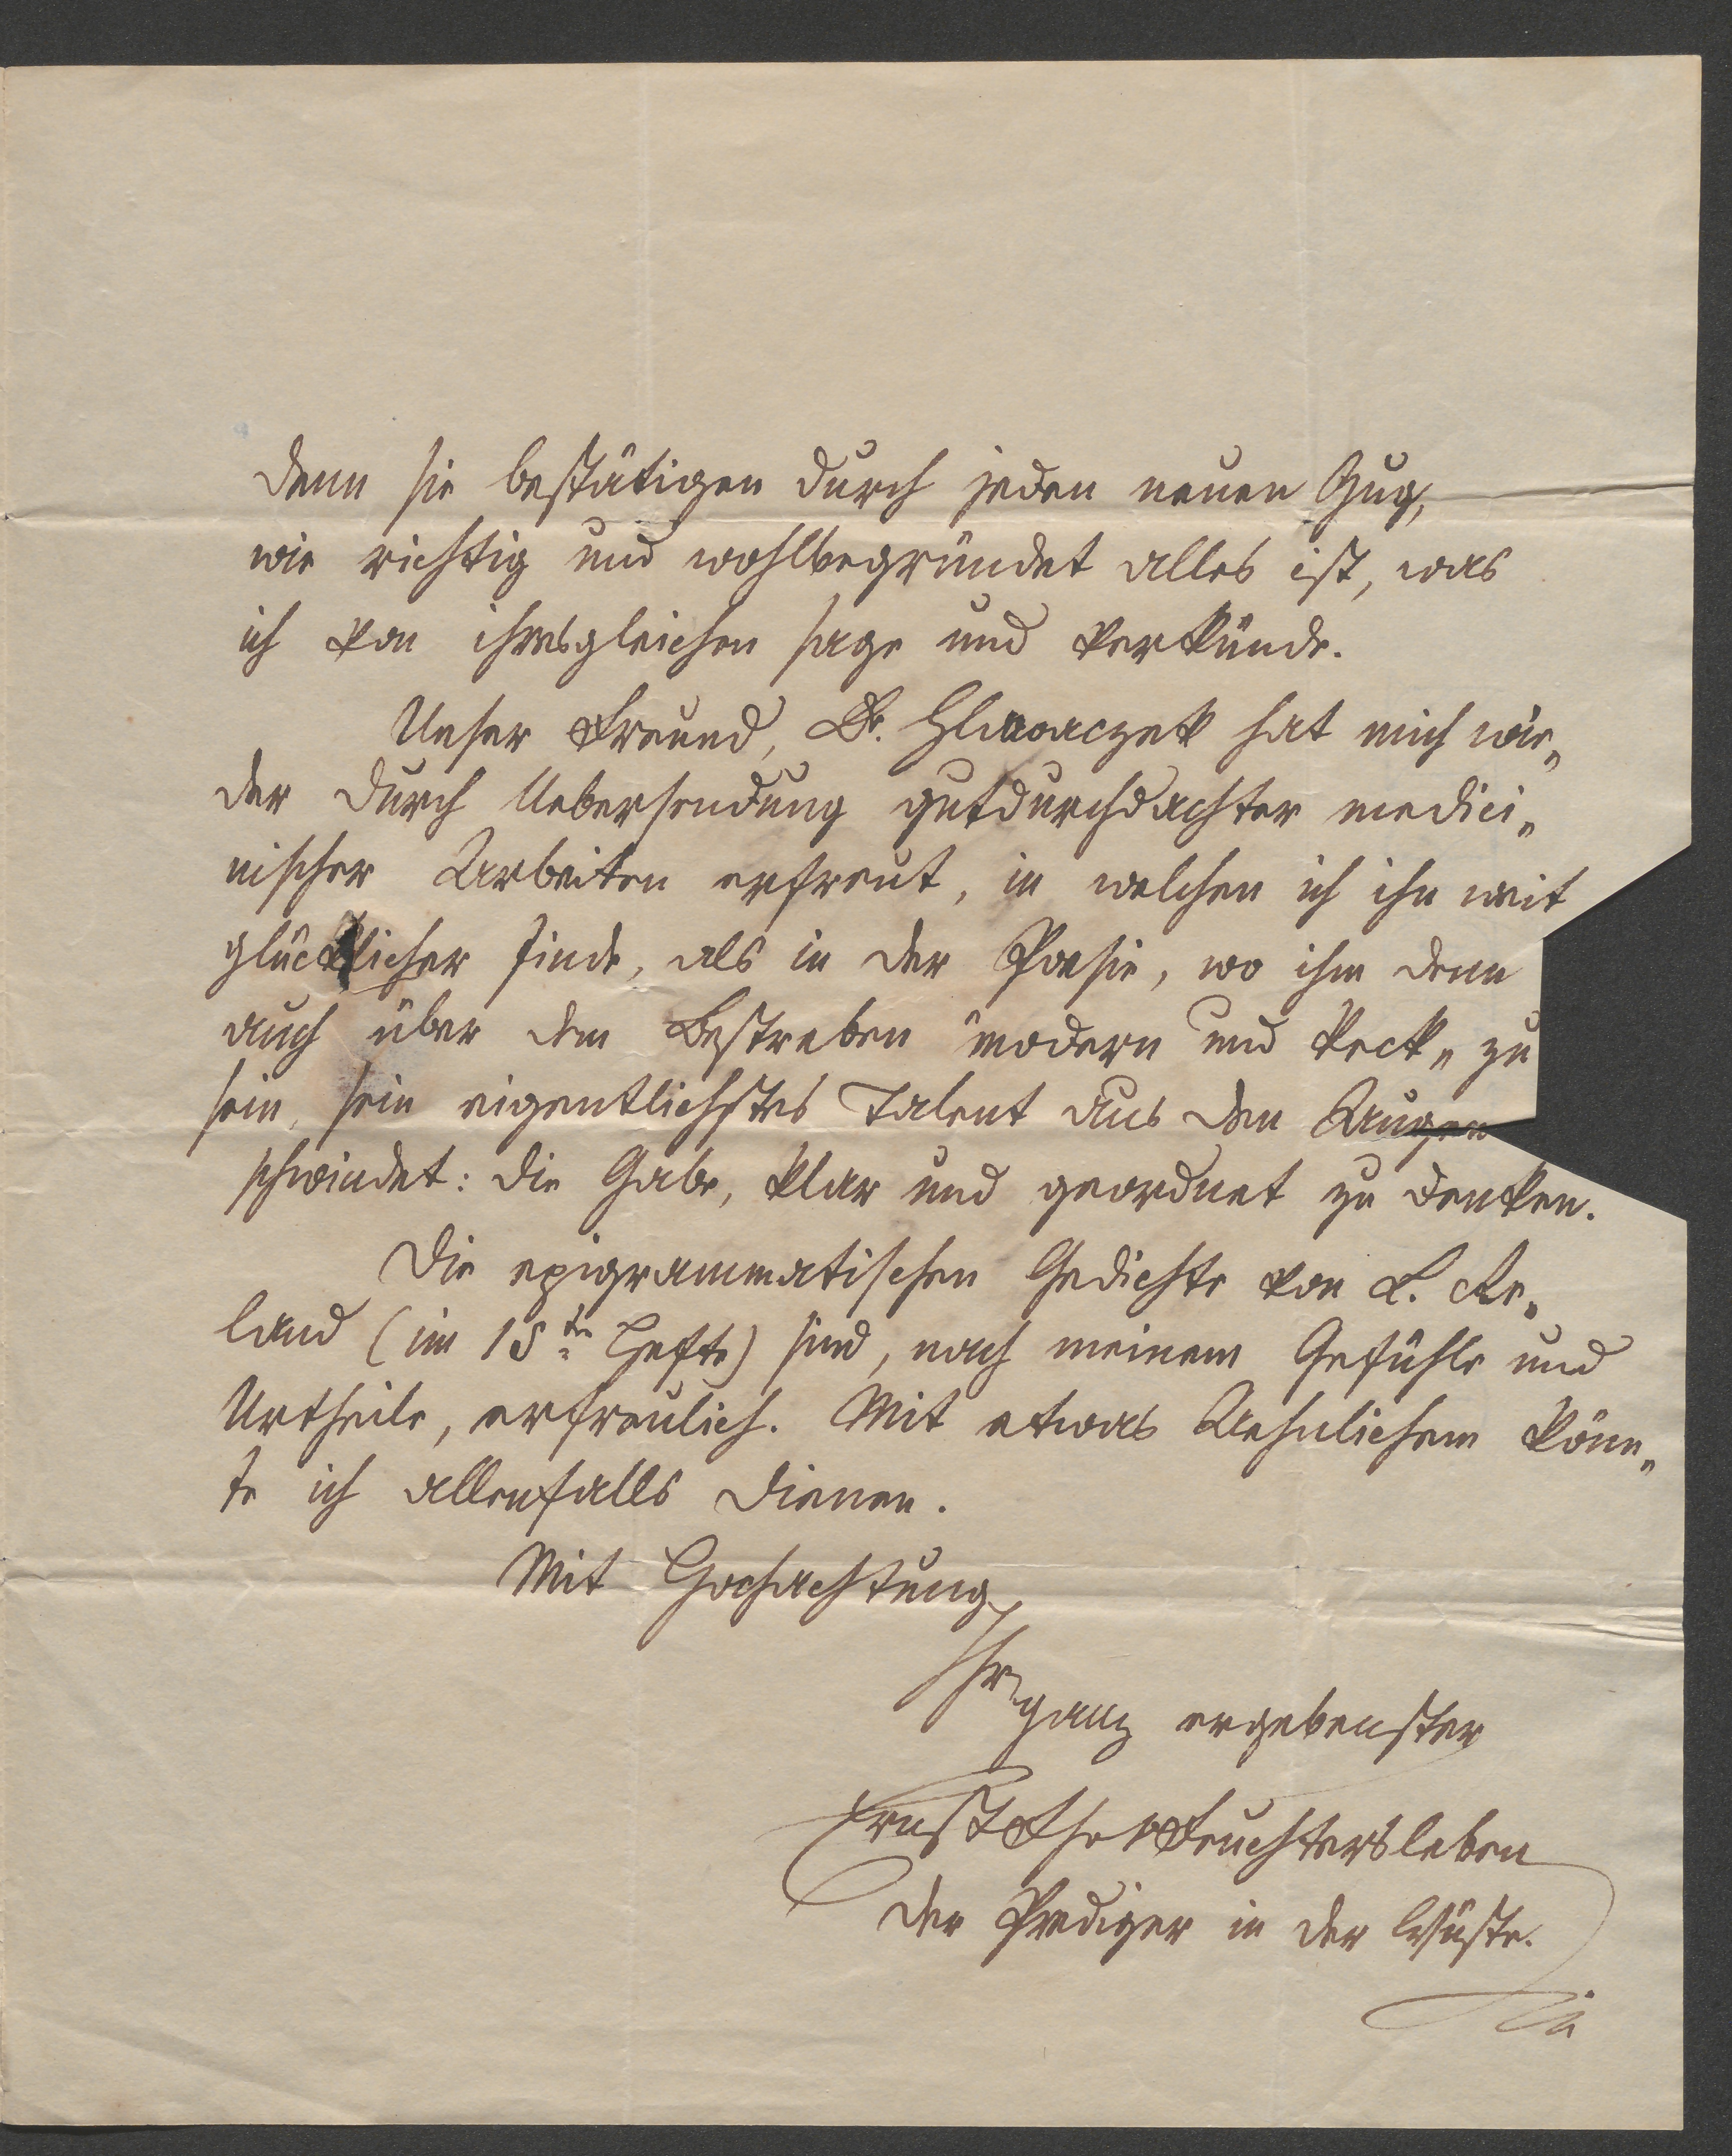 denn sie bestätigen durch jeden neuen Zug,
wie richtig und wohlbegründet alles ist, was
ich von ihresgleichen sage und verkünde.
Unser Freund, Dr. Hlawaczek hat mich wie„
der durch Uebersendung gutdurchdachter medici„
nischer Arbeiten erfreut, in welchen ich ihn weit
glücklicher finde, als in der Poesie, wo ihm denn
auch über dem Bestreben „modern und keck„ zu
sein, sein eigentlichstes Talent aus den Augen
schwindet: die Gabe, klar und geordnet zu denken.
Die epigrammatischen Gedichte von L. Re„
land (im 15ten Hefte) sind, nach meinem Gefühle und
Urtheile, erfreulich. Mit etwas Aehnlichem könn„
te ich allenfalls dienen.
Mit Hochachtung
Ihr
ganz ergebenster
Ernst Fhr v Feuchtersleben
der Prediger in der Wüste.